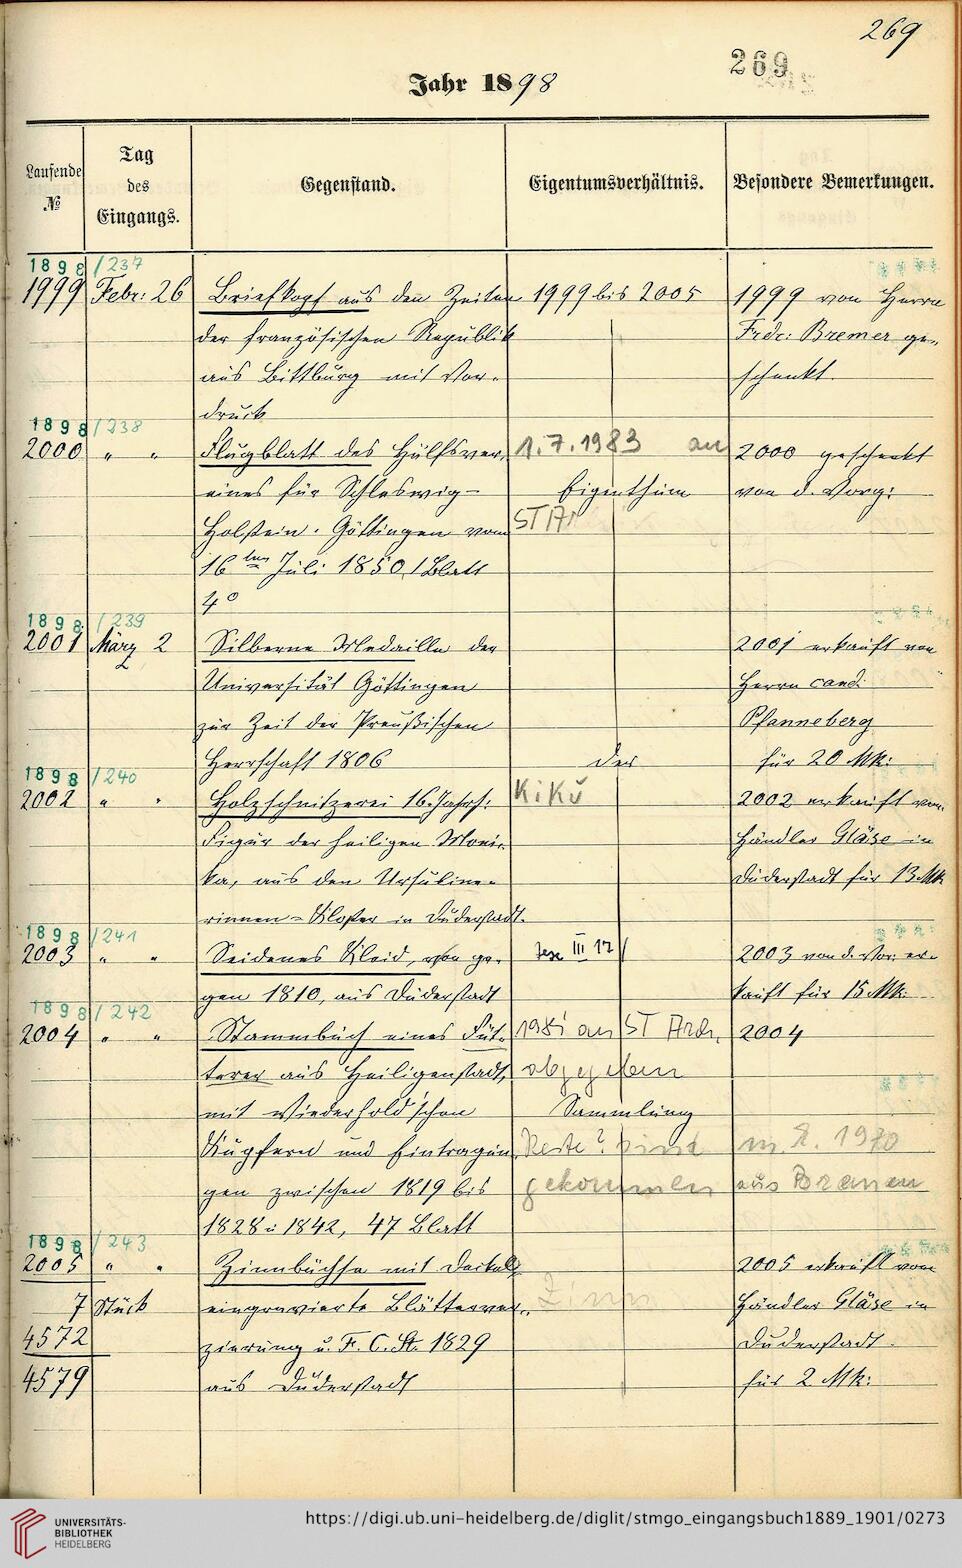 269
269
Jahr 1898
Laufende
№
Tag
des
Eingangs.
Gegenstand.
Eigentumsverhältnis.
Besondere Bemerkungen.
1898/237
1999 Febr: 26 Briefkopf aus den Zeiten 1999 bis 2005 1999 von Herrn
der französischen Republik Frdr: Bremer ge-
aus Bittburg mit Vor- schenkt.
druck
1898/238
2000 " " Flugblatt des Hülfsver- 1.7.1983 an 2000 geschenkt
eines für Schleswig- Eigenthum von d. Vorg:
Holstein. Göttingen vom STAr
16ten Juli 1850, 1 Blatt
4°
1898/239
2001 März 2 Silberne Medaille der 2001 erkauft von
Universität Göttingen Herrn cand:
zur Zeit der Preußischen Pfanneberg
Herrschaft 1806 der für 20 Mk:
1898/240
2002 " " Holzschnitzerei 16. Jahrh: KiKü 2002 erkauft vom
Figur der heiligen Moni- Händler Gläse in
ka, aus den Ursuline- Duderstadt für 13 Mk
rinnen-Kloster in Duderstadt.
1898/241
2003 " " Seidenes Kleid, von ge- III 17 2003 von d. Vor: er-
gen 1810, aus Duderstadt kauft für 15 Mk:
1898/242
2004 " " Stammbuch eines Füt- 1981 an ST Arch. 2004
terer aus Heiligenstadt, abgegeben
mit Wiederhold'schen Sammlung
Kupfern und Eintragun- Reste? sind 1970
gen zwischen 1819 bis gekommen aus Bremen
1828 u 1842, 47 Blatt
1898/243
2005 " " Zinnbüchse mit Deckel, 2005 erkauft vom
7 Stück eingravierte Blätterver- Zinn Händler Gläse in
4572 zierung u. F. C. St. 1829 Duderstadt.
4579 aus Duderstadt für 2 Mk:
UNIVERSITÄTS-
BIBLIOTHEK
HEIDELBERG
https://digi.ub.uni-heidelberg.de/diglit/stmgo_eingangsbuch1889_1901/0273